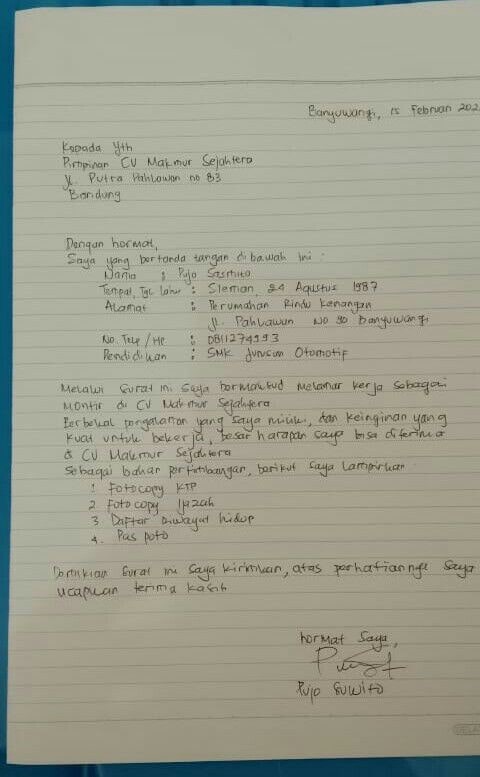 Banyuwangi, 15 Februari 202
Kepada Yth
Pimpinan CV Makmur Sejahtera
Jl. Putra Pahlawan no 83
Bandung
Dengan hormat,
Saya yang bertanda tangan dibawah ini :
Nama : Pujo Sasmito
Tempat, Tgl Lahir : Sleman, 24 Agustus 1987
Alamat : Perumahan Rindu Kenangan
Jl. Pahlawan No 90 Banyuwangi
No. Telp / HP : 0811274993
Pendidikan : SMK Jurusan Otomotif
Melalui surat ini saya bermaksud melamar kerja sebagai
montir di CV Makmur Sejahtera
Berbekal pengalaman yang saya miliki, dan keinginan yang
kuat untuk bekerja, besar harapan saya bisa diterima
di CV Makmur Sejahtera
Sebagai bahan pertimbangan, berikut saya lampirkan
1 Fotocopy KTP
2 Fotocopy Ijazah
3 Daftar Riwayat hidup
4. Pas poto
Demikian surat ini saya kirimkan, atas perhatiannya saya
ucapkan terima kasih
hormat saya,
Pujo Suwito